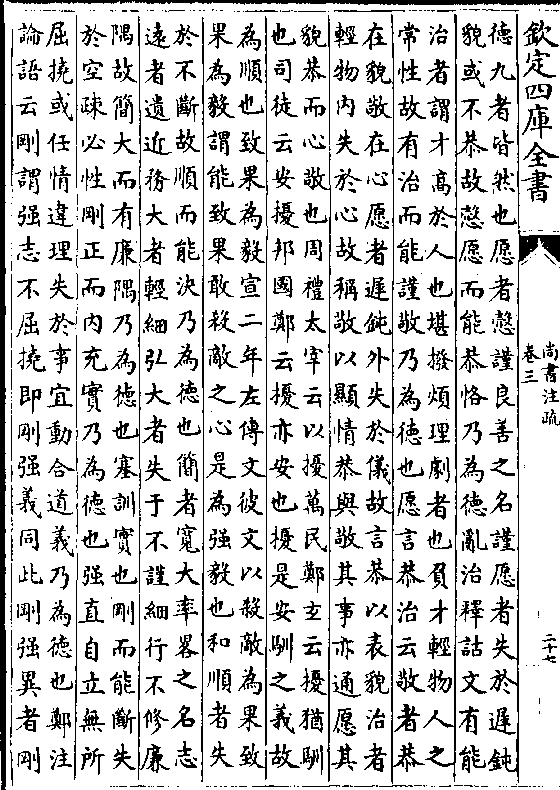 欽定四庫全書
尚書注疏
卷三
二十七
德九者皆然也愿者慤謹良善之名謹愿者失於遲鈍
貌或不恭故慤愿而能恭恪乃為德亂治釋詁文有能
治者謂才高於人也堪撥煩理劇者也負才輕物人之
常性故有治而能謹敬乃為德也愿言恭治云敬者恭
在貌敬在心愿者遲鈍外失於儀故言恭以表貌治者
輕物内失於心故稱敬以顯情恭與敬其事亦通愿其
貌恭而心敬也周禮太宰云以擾萬民鄭玄云擾猶馴
也司徒云安擾邦國鄭云擾亦安也擾是安馴之義故
為順也致果為毅宣二年左傳文彼文以殺敵為果致
果為毅謂能致果敢殺敵之心是為强毅也和順者失
於不斷故順而能決乃為德也簡者寛大率畧之名志
遠者遺近務大者輕細弘大者失于不謹細行不修廉
隅故簡大而有廉隅乃為德也塞訓實也剛而能斷失
於空疎必性剛正而内充實乃為德也强直自立無所
屈撓或任情違理失於事宜動合道義乃為德也鄭注
論語云剛謂强志不屈撓即剛强義同此剛强異者剛